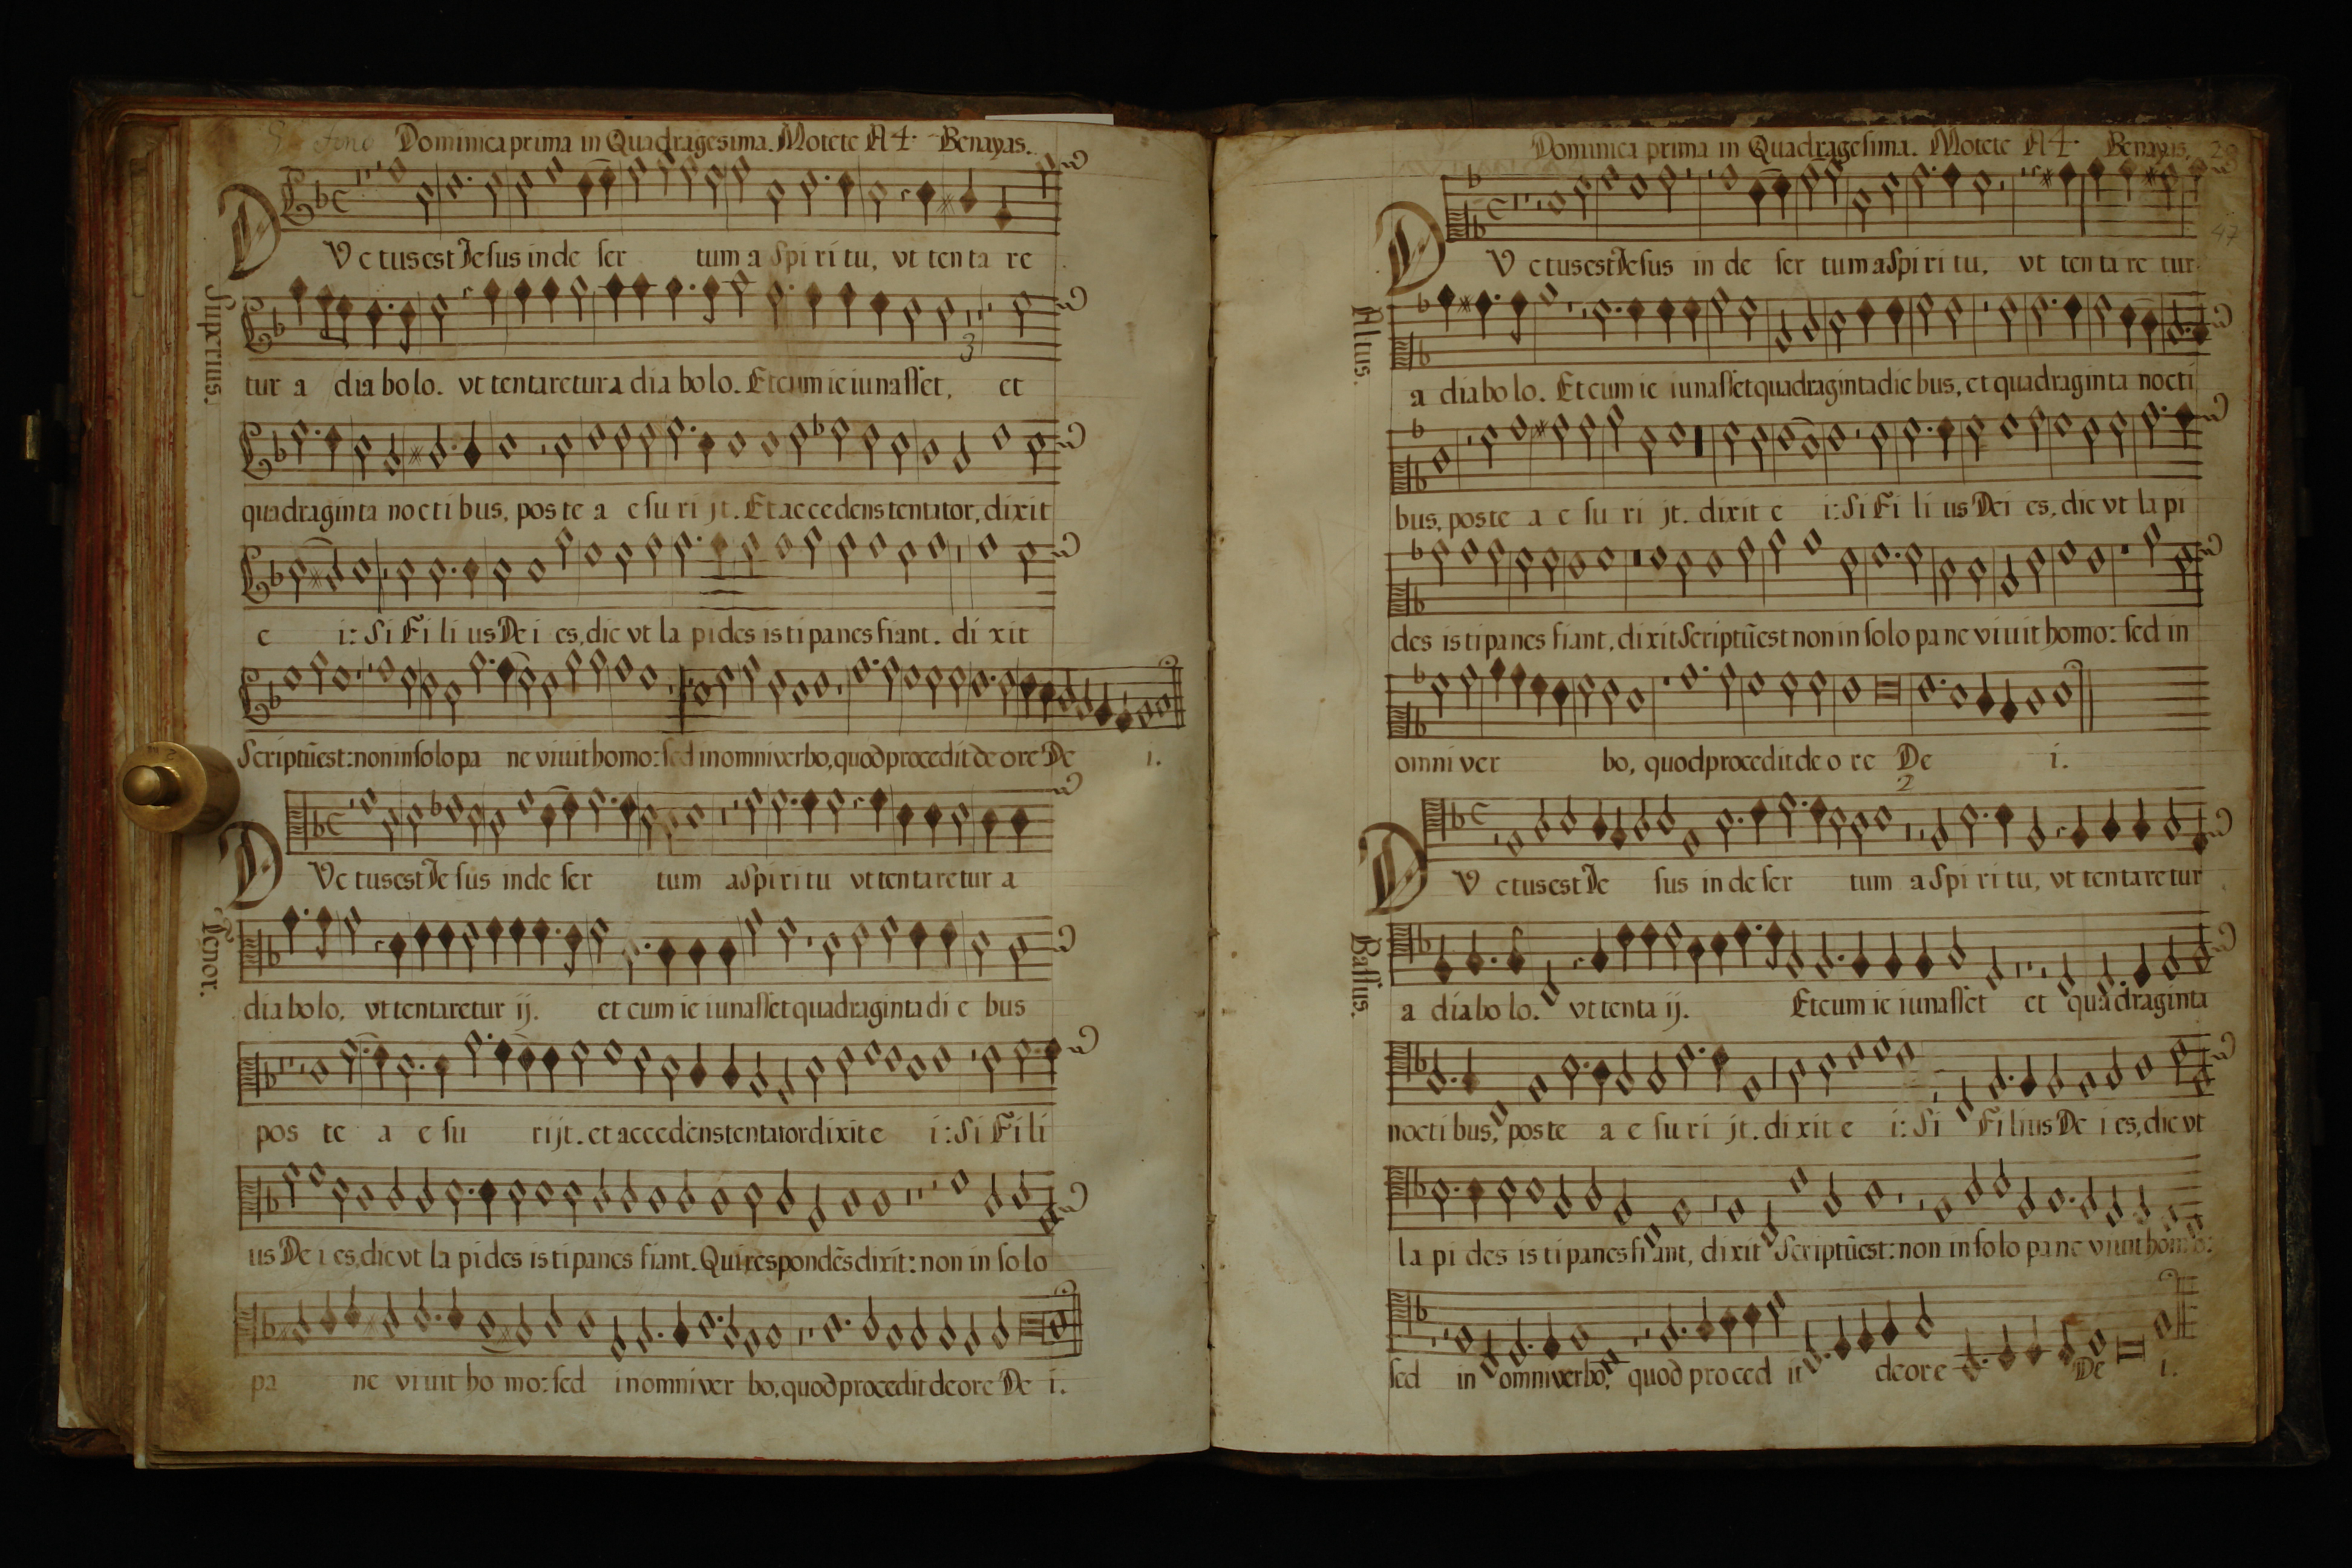 Dominica prima in Quadragesima. Motete A 4. Benayas.
DVctus est Iesus in de ser tum a Spi ri tu, vt ten ta re
Superius.
tur a dia bo lo. vt tentaretur a dia bo lo. Et cum ie iunasset, et
3
quadraginta noctibus, pos te a e su ri jt. Et accedens tentator, dixit
e i: Si Fi li us De i es, dic vt la pides is ti panes fiant. di xit
Scriptũ est: non in solo pa ne viuit homo: sed in omni verbo, quod procedit de ore De i.
DVc tus est Ie sus in de ser tum a Spi ri tu vt ten ta re tur a
Tenor.
dia bo lo, vt tentaretur ij. et cum ie iunasset quadraginta di e bus
pos te a e su rijt. et accedens tentator dixit e i: Si Fi li
us De i es, dic vt la pi des is ti panes fiant. Qui respondẽs dixit: non in so lo
pa ne viuit ho mo: sed in omni ver bo, quod procedit de ore De i.
Dominica prima in Quadragesima. Motete A 4. Benayas.
28
47
DVctus est Iesus in de ser tum a Spi ri tu, vt ten ta re tur
Altus.
a dia bo lo. Et cum ie iunasset quadraginta die bus, et quadraginta nocti
bus, poste a e su ri jt. dixit e i: Si Fi li us Dei es, dic vt la pi
des is ti panes fiant, di xit Scriptũ est non in solo pa ne viuit homo: sed in
omni ver bo, quod procedit de o re De i.
2
DVctus est Ie sus in de ser tum a Spi ri tu, vt ten ta re tur
Bassus.
a dia bo lo. vt tenta ij. Et cum ie iunasset et quadraginta
nocti bus, poste a e su ri jt. di xit e i: Si Filius De i es, dic vt
la pi des is ti panes fiant, di xit Scriptũ est: non in solo pa ne viuit homo:
sed in omni verbo, quod proced it de ore De i.